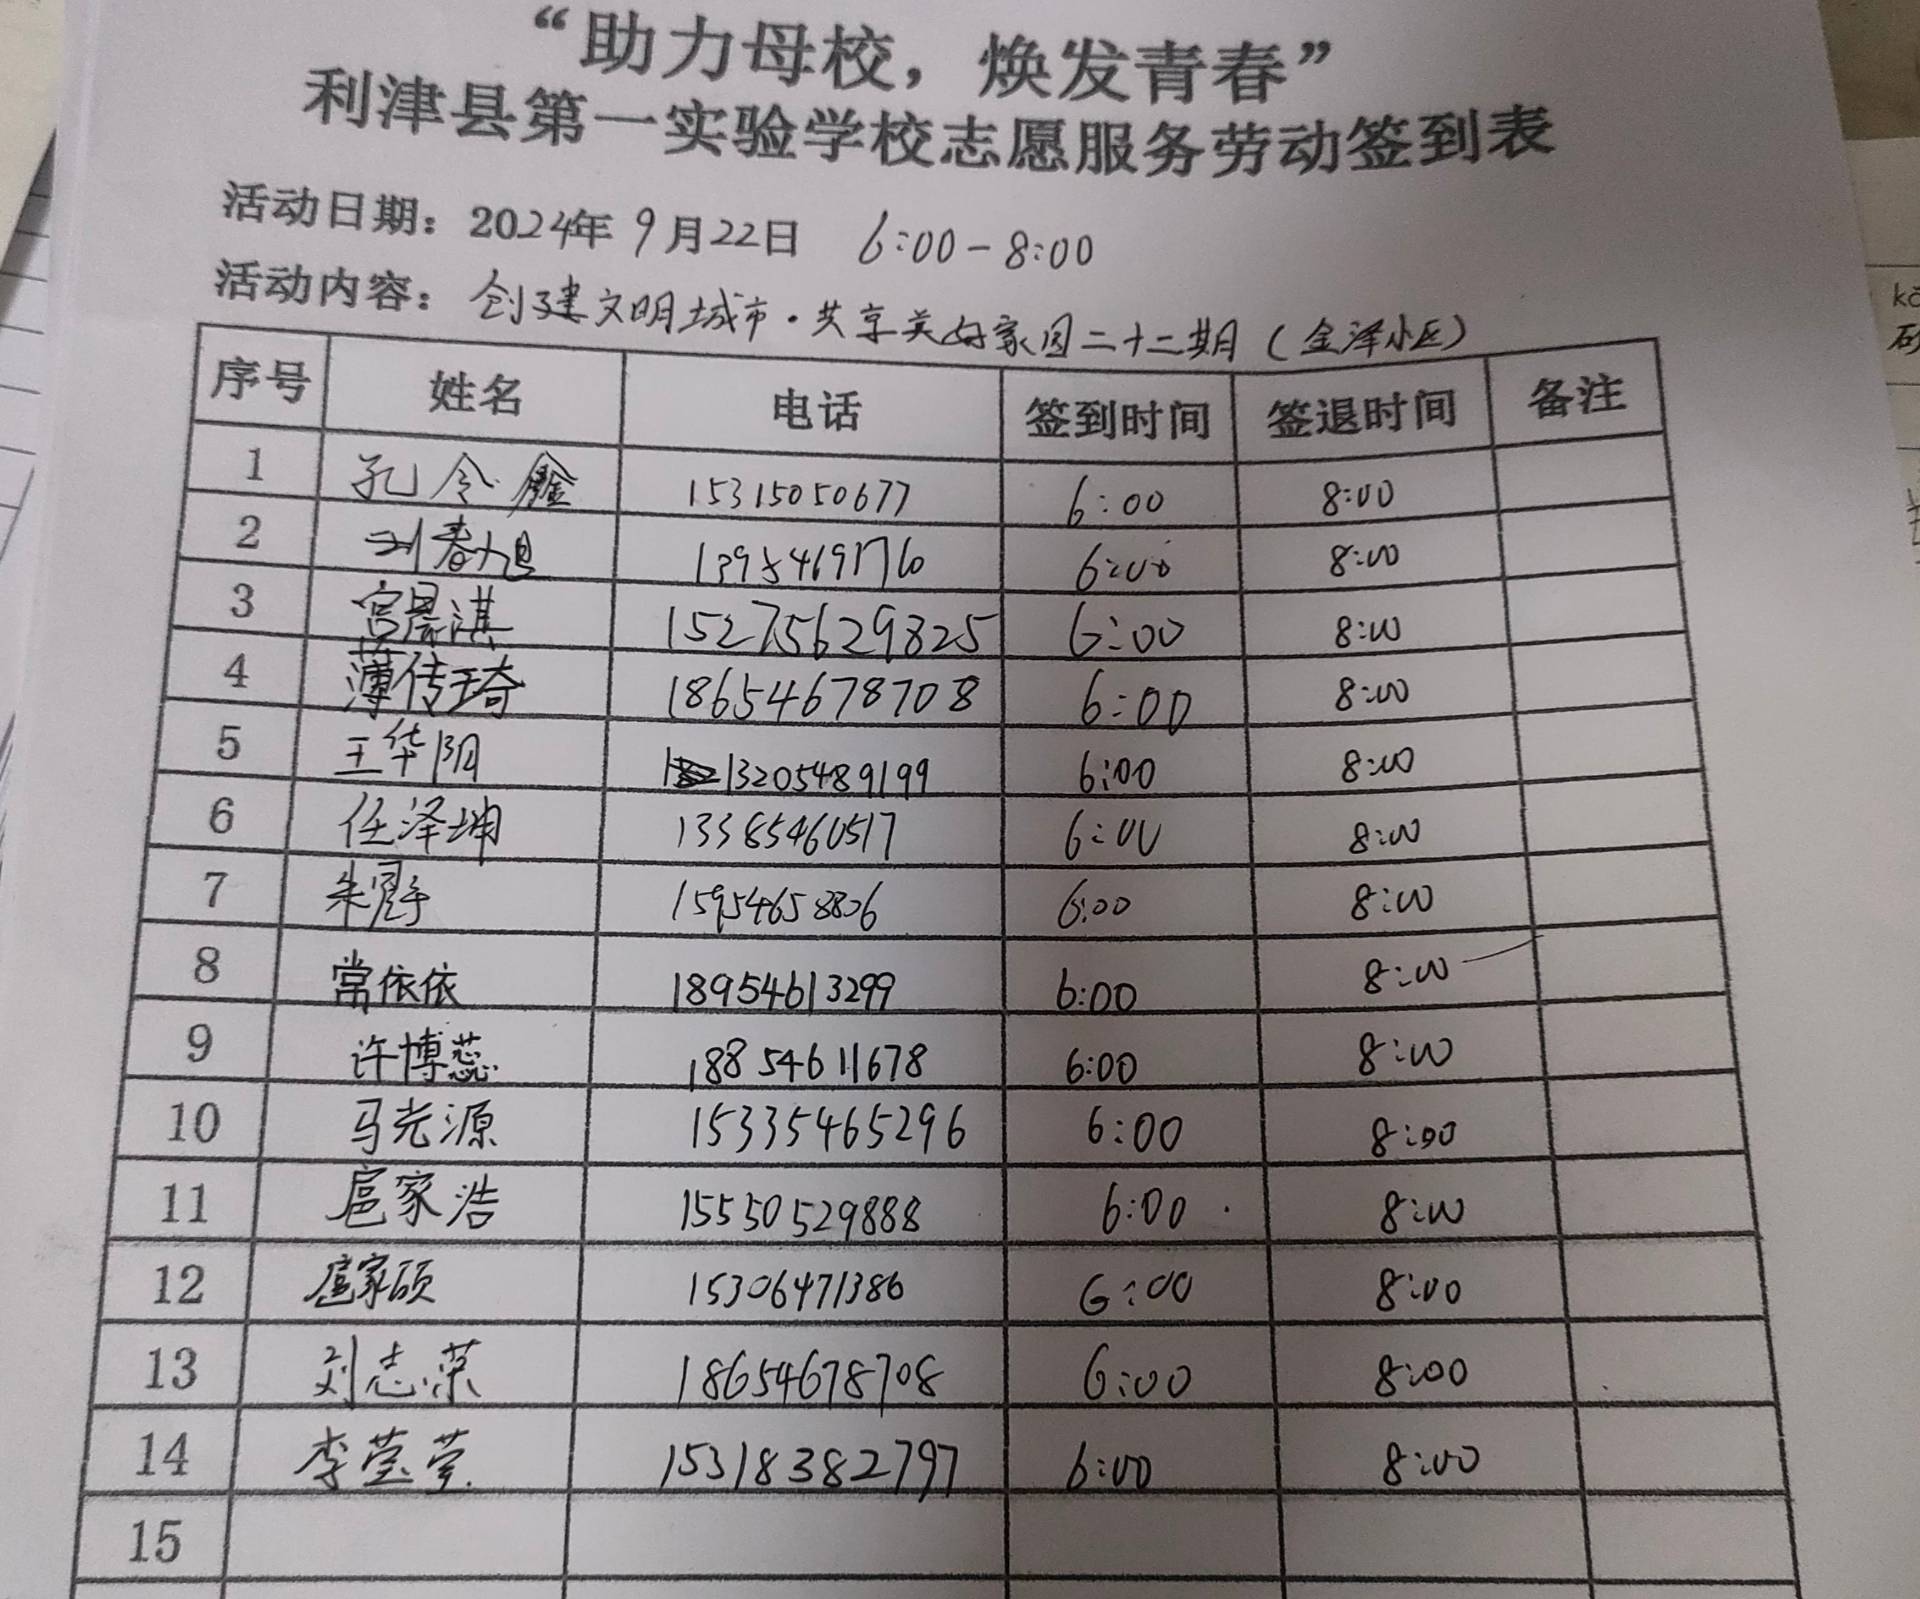 “助力母校，焕发青春”
利津县第一实验学校志愿服务劳动签到表
活动日期：2024年9月22日 6:00-8:00
活动内容：创建文明城市·共享美好家园二十二期（金泽小区）
序号 姓名 电话 签到时间 签退时间 备注
1 孔令 15315050677 6:00 8:00
2 刘春旭 13954691760 6:00 8:00
3 宫晨淇 15275629825 6:00 8:00
4 薄传琦 18654678708 6:00 8:00
5 王华阳 13205489199 6:00 8:00
6 任泽坤 13385460517 6:00 8:00
7 朱 15954658806 6:00 8:00
8 常依依 18954613299 6:00 8:00
9 许博蕊 18854611678 6:00 8:00
10 马光源 15335465296 6:00 8:00
11 扈家浩 15550529888 6:00 8:00
12 扈家硕 15306471386 6:00 8:00
13 刘志荣 18654678708 6:00 8:00
14 李莹莹 15318382797 6:00 8:00
15